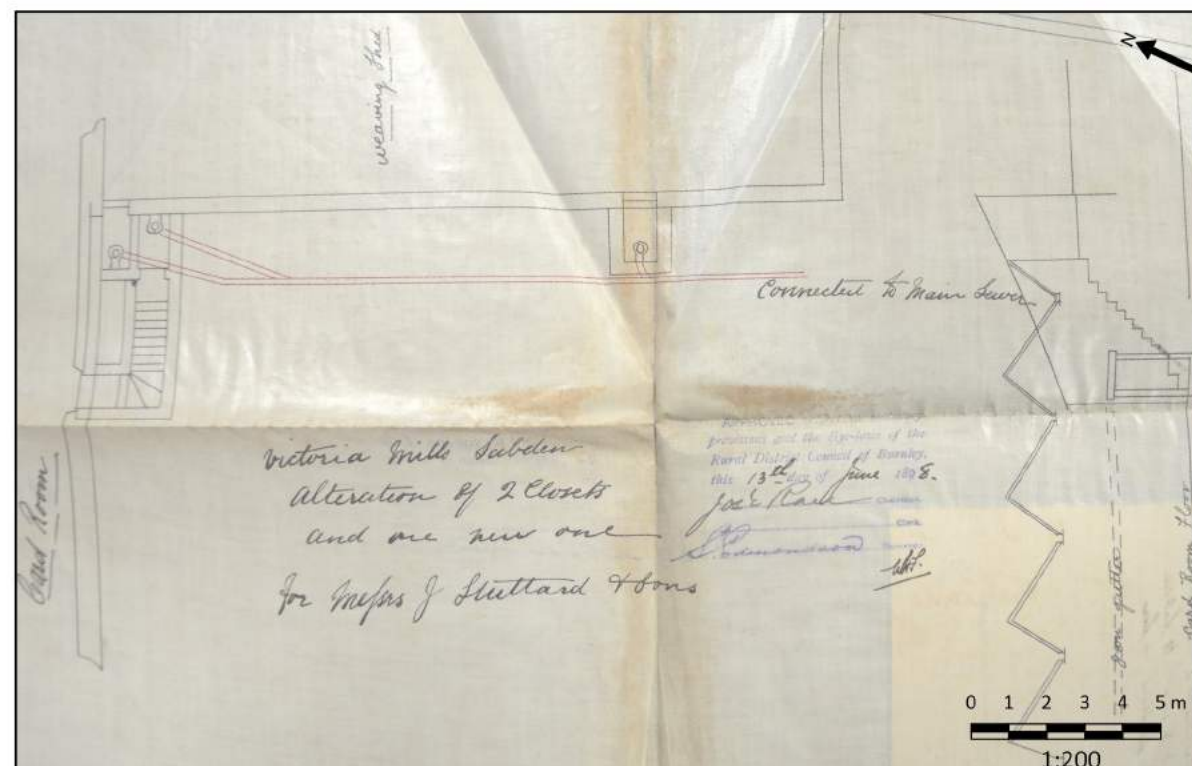 weaving Shed
N
Connected to Main Sewer
Victoria Mills Sabden
Alteration of 2 Closets
and one new one
for Messrs J Stuttard & Sons
provisions and the Bye-laws of the
Rural District Council of Burnley,
this 13th day of June 1898.
Chairman
Clerk
S. Edmondson
Card Room
iron gutter
Card Room Floor
0 1 2 3 4 5 m
1:200